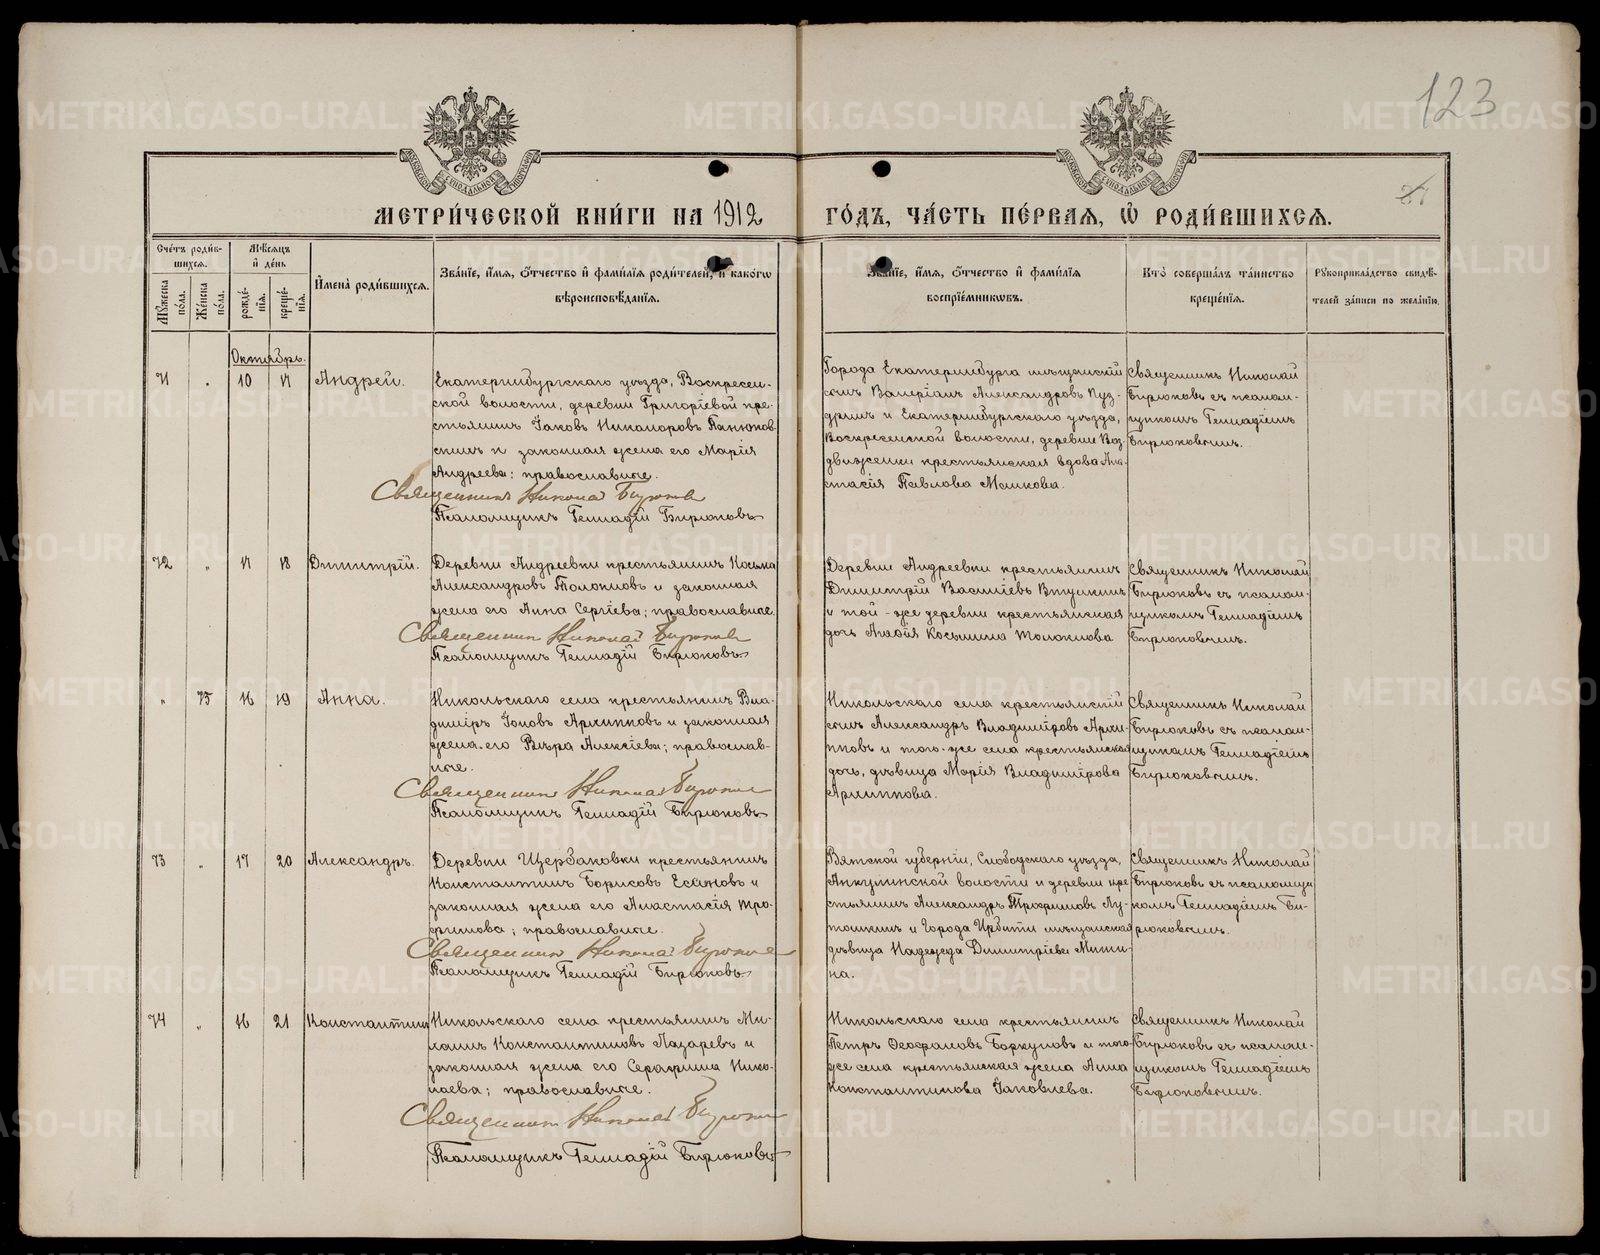 123
МЕТРИ́ЧЕСКОЙ КНИ́ГИ НА 1912 ГО́ДЪ, ЧА́СТЬ ПЕ́РВАЯ, Ѡ РОДИ́ВШИХСЯ.
Сче́тъ роди́в-
шихся.
Мꙋжеска по́ла.
Же́нска по́ла.
Мѣ́сяцъ
и҆ де́нь
рожде́-
нїя.
креще́-
нїя.
И҆мена̀ роди́вшихся.
Зва́нїе, и҆́мя, ѻ҆́тчество и҆ фами́лїя роди́телей, и҆ како́гѡ
вѣроисповѣ́данїя.
Зва́нїе, и҆́мя, ѻ҆́тчество и҆ фами́лїя
воспрїе́мниковъ.
Кто̀ соверша́лъ та́инство
креще́нїя.
Рꙋкоприкла́дство свидѣ́-
телей за́писи по жела́нїю.
Октябрь.
71 „ 10 17 Андрей.
Екатеринбургскаго уѣзда, Воскресен-
ской волости, деревни Григоріевой кре-
стьянинъ Іаковъ Никаноровъ
и законная жена его Марія
Андреева; православные.
Священникъ Николай Бирюковъ
Псаломщикъ Геннадій Бирюковъ
Города Екатеринбурга мѣщанскій
сынъ Валеріанъ Александровъ Куз-
и Екатеринбургскаго уѣзда,
Воскресенской волости, деревни Воз-
движенки крестьянская вдова Ана-
стасія Павлова Мешкова.
Священникъ Николай
Бирюковъ съ псалом-
щикомъ Геннадіемъ
Бирюковымъ.
72 „ 17 18 Димитрій.
Деревни Андреевки крестьянинъ Косьма
Александровъ Толокновъ и законная
жена его Анна Сергіева; православные.
Священникъ Николай Бирюковъ
Псаломщикъ Геннадій Бирюковъ
Деревни Андреевки крестьянинъ
Димитрій Василіевъ Втушкинъ
и той-же деревни крестьянская
дочь Косьмина Толокнова
Священникъ Николай
Бирюковъ съ псалом-
щикомъ Геннадіемъ
Бирюковымъ.
„ 75 16 19 Анна.
Никольскаго села крестьянинъ Вла-
диміръ Іоновъ Архиповъ и законная
жена его Вѣра Алексіева; православ-
ные.
Священникъ Николай Бирюковъ
Псаломщикъ Геннадій Бирюковъ
Никольскаго села крестьянскій
сынъ Александръ Владиміровъ Архи-
повъ и того-же села крестьянская
дочь, дѣвица Марія Владимірова
Архиппова.
Священникъ Николай
Бирюковъ съ псалом-
щикомъ Геннадіемъ
Бирюковымъ.
73 „ 17 20 Александръ.
Деревни Щербаковки крестьянинъ
Константинъ Борисовъ Есановъ и
законная жена его Анастасія Тро-
фимова; православные.
Священникъ Николай Бирюковъ
Псаломщикъ Геннадій Бирюковъ
Вятской губерніи, Слободскаго уѣзда,
волости и деревни кре-
стьянинъ Александръ Трофимовъ Лу-
тошкинъ и Города Ирбити мѣщанская
дѣвица Надежда Димитріева Мити-
на.
Священникъ Николай
Бирюковъ съ псаломщи-
комъ Геннадіемъ Би-
рюковымъ.
74 „ 16 21 Константинъ
Никольскаго села крестьянинъ Ми-
хаилъ Константиновъ Лазаревъ и
законная жена его Серафима Нико-
лаева; православные.
Священникъ Николай Бирюковъ
Псаломщикъ Геннадій Бирюковъ
Никольскаго села крестьянинъ
Петръ Ѳеофановъ Боркуновъ и того-
же села крестьянская жена Анна
Константинова Іаковлева.
Священникъ Николай
Бирюковъ съ псалом-
щикомъ Геннадіемъ
Бирюковымъ.
METRIKI.GASO-URAL.RU